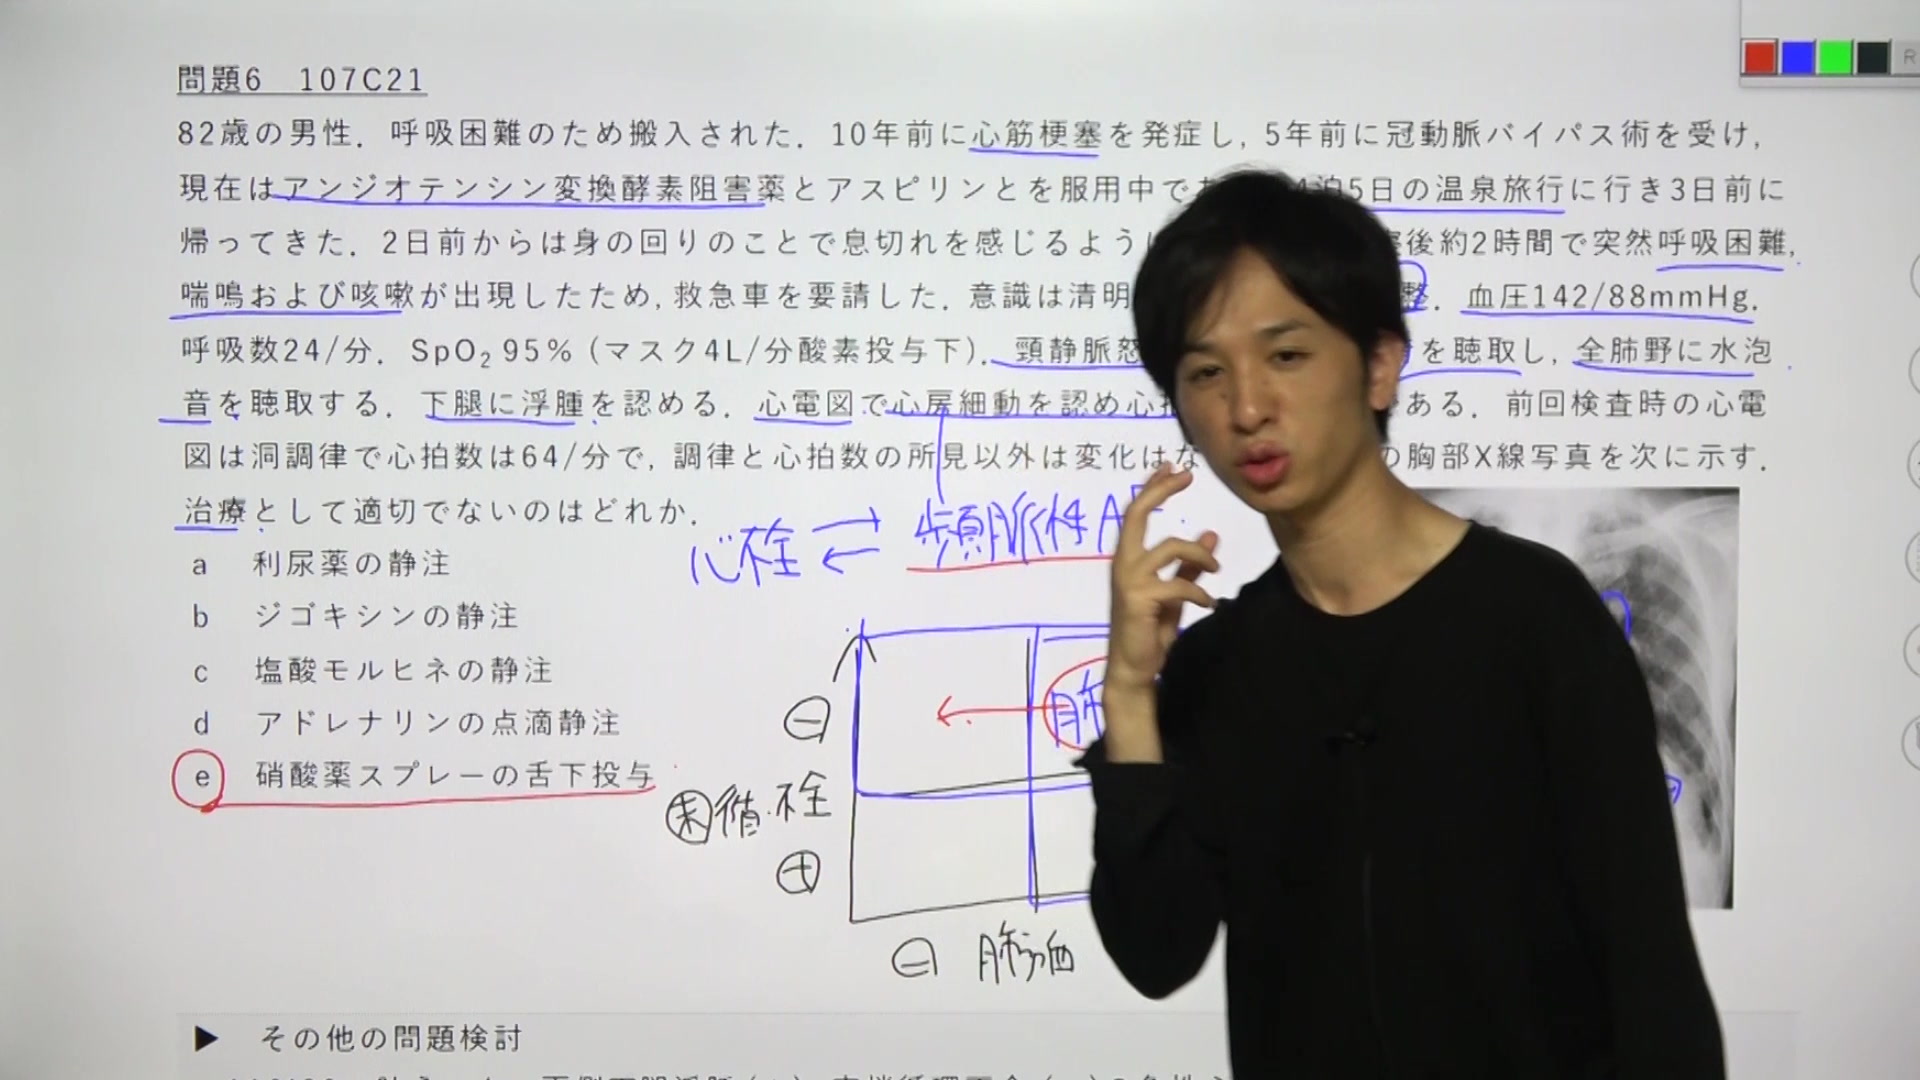 問題6 107C21
82歳の男性．呼吸困難のため搬入された．10年前に心筋梗塞を発症し，5年前に冠動脈バイパス術を受け，
現在はアンジオテンシン変換酵素阻害薬とアスピリンとを服用中で 泊5日の温泉旅行に行き3日前に
帰ってきた．2日前からは身の回りのことで息切れを感じるよう 後約2時間で突然呼吸困難，
喘鳴および咳嗽が出現したため，救急車を要請した．意識は清明 整．血圧142/88mmHg．
呼吸数24/分．SpO₂ 95%（マスク4L/分酸素投与下）．頸静脈怒 を聴取し，全肺野に水泡
音を聴取する．下腿に浮腫を認める．心電図で心房細動を認め心 ある．前回検査時の心電
図は洞調律で心拍数は64/分で，調律と心拍数の所見以外は変化はな の胸部X線写真を次に示す．
治療として適切でないのはどれか．
心栓 頻脈性A
a 利尿薬の静注
b ジゴキシンの静注
c 塩酸モルヒネの静注
d アドレナリンの点滴静注
e 硝酸薬スプレーの舌下投与
⊖
肺
末循.栓
⊕
⊖ 肺
▶ その他の問題検討